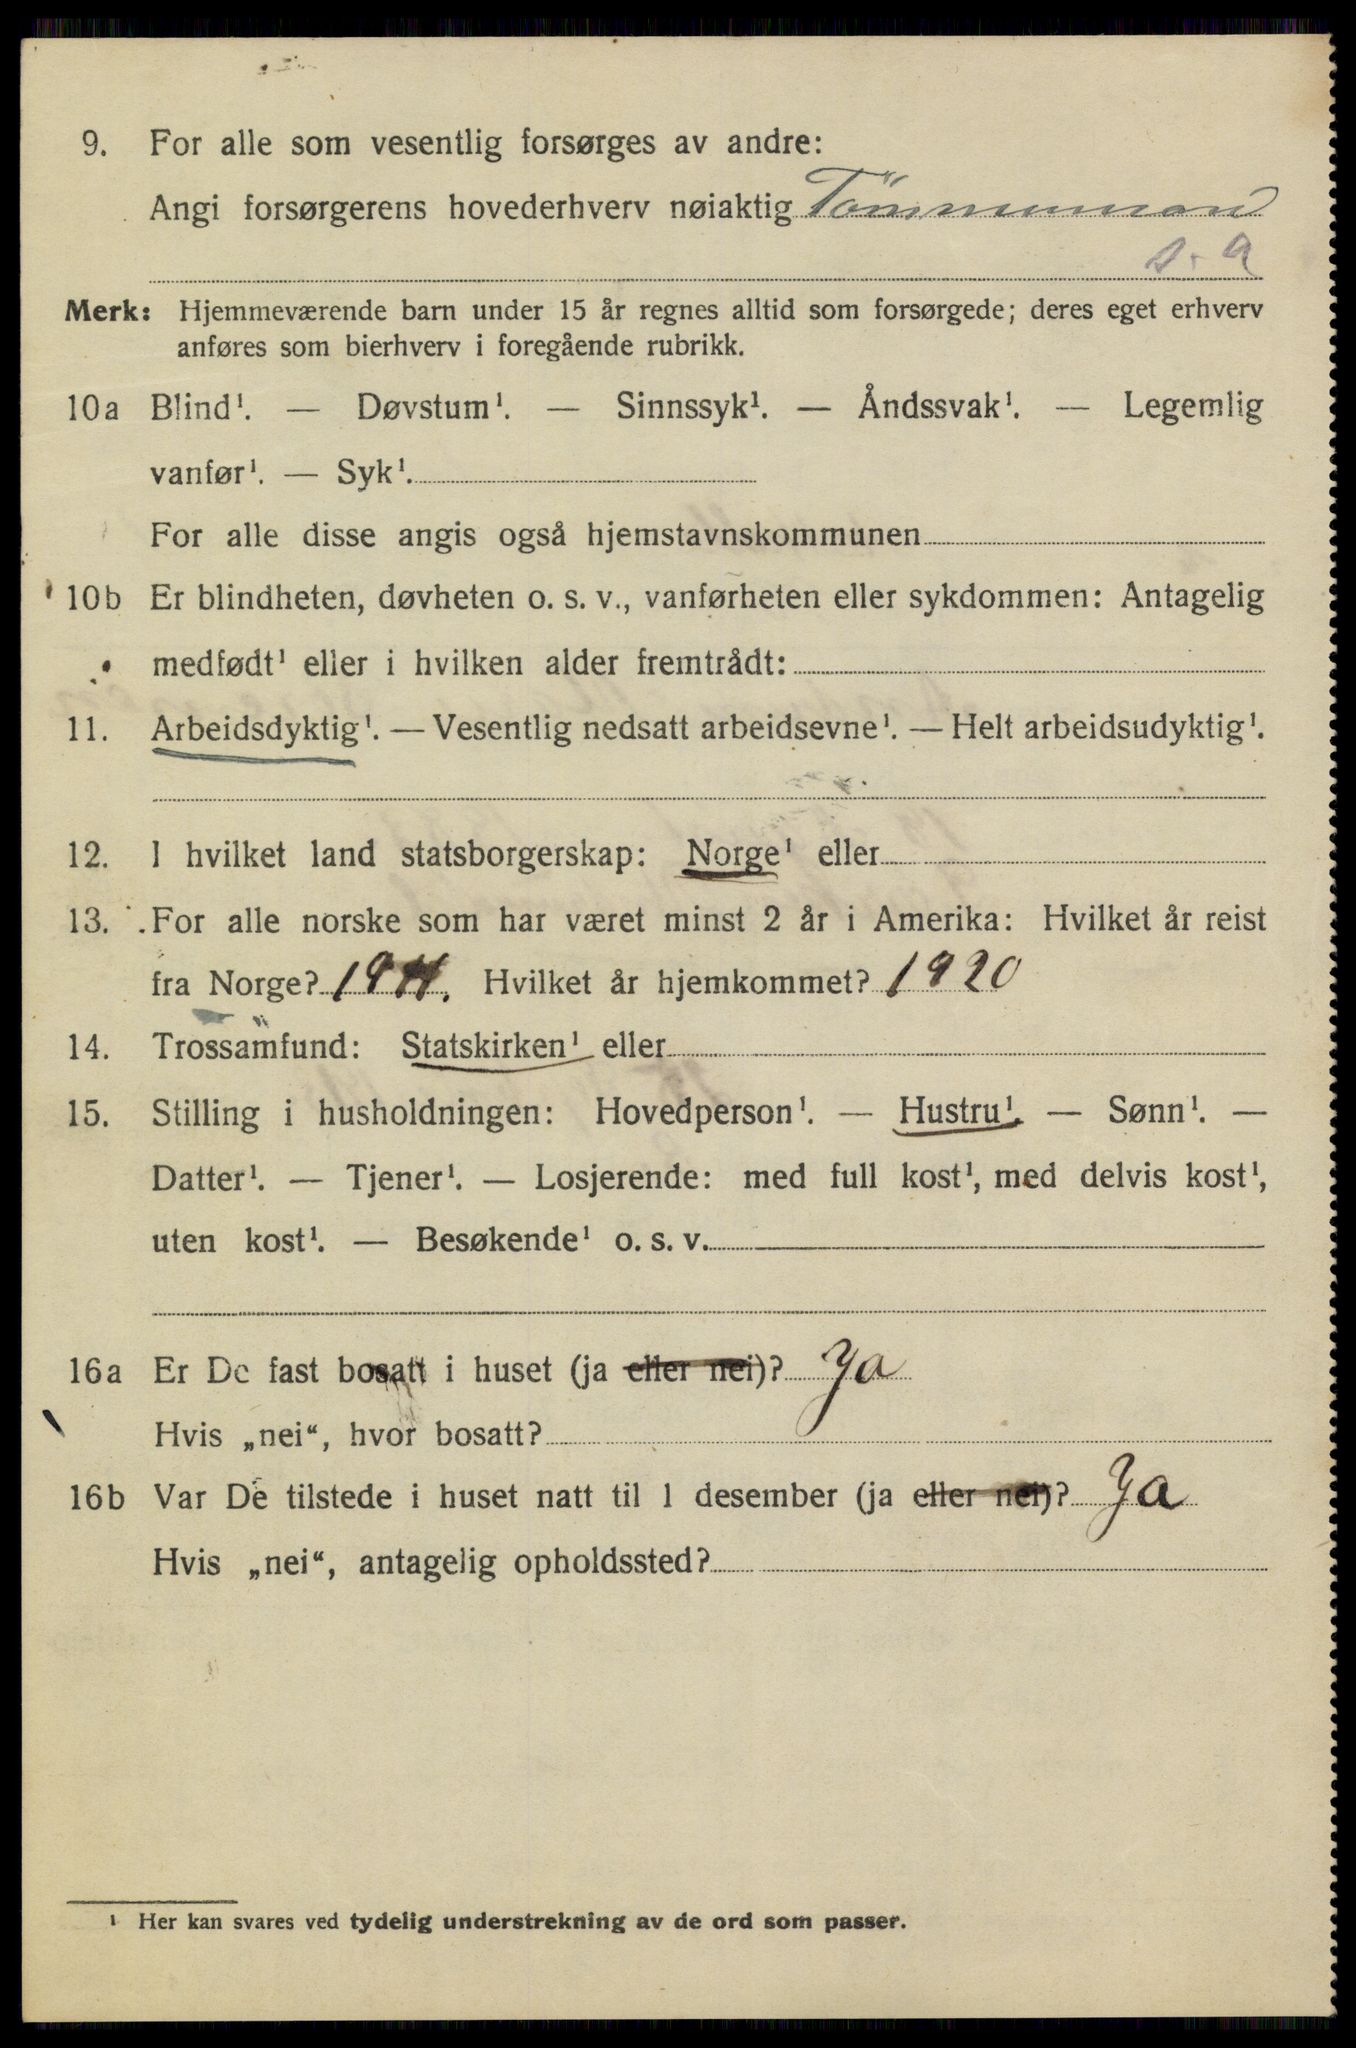 9. For alle som vesentlig forsørges av andre:
Angi forsørgerens hovederhverv nøiaktig Tömmermand
s. a
Merk: Hjemmeværende barn under 15 år regnes alltid som forsørgede; deres eget erhverv
anføres som bierhverv i foregående rubrikk.
10a Blind¹. — Døvstum¹. — Sinnssyk¹. — Åndssvak¹. — Legemlig
vanfør¹. — Syk¹.
For alle disse angis også hjemstavnskommunen
10b Er blindheten, døvheten o. s. v., vanførheten eller sykdommen: Antagelig
medfødt¹ eller i hvilken alder fremtrådt:
11. Arbeidsdyktig¹. — Vesentlig nedsatt arbeidsevne¹. — Helt arbeidsudyktig¹.
12. I hvilket land statsborgerskap: Norge¹ eller
13. For alle norske som har været minst 2 år i Amerika: Hvilket år reist
fra Norge? 1911. Hvilket år hjemkommet? 1920
14. Trossamfund: Statskirken¹ eller
15. Stilling i husholdningen: Hovedperson¹. — Hustru¹. — Sønn¹. —
Datter¹. — Tjener¹. — Losjerende: med full kost¹, med delvis kost¹,
uten kost¹. — Besøkende¹ o. s. v.
16a Er De fast bosatt i huset (ja eller nei)? Ja
Hvis „nei“, hvor bosatt?
16b Var De tilstede i huset natt til 1 desember (ja eller nei)? Ja
Hvis „nei“, antagelig opholdssted?
¹ Her kan svares ved tydelig understrekning av de ord som passer.